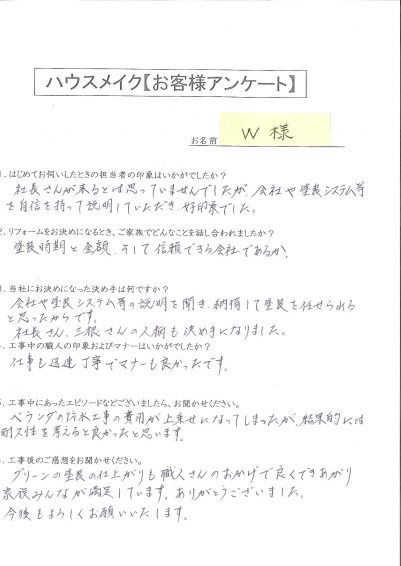 ハウスメイク【お客様アンケート】
お名前 W 様
1. はじめてお伺いしたときの担当者の印象はいかがでしたか？
社長さんが来るとは思っていませんでしたが、会社や塗装システム等
を自信を持って説明していただき、好印象でした。
2. リフォームをお決めになるとき、ご家族でどんなことを話し合われましたか？
塗装時期と金額、そして信頼できる会社であるか、
3. 当社にお決めになった決め手は何ですか？
会社や塗装システム等の説明を聞き、納得して塗装を任せられる
と思ったからです。
社長さん、三根さんの人柄も決め手になりました。
. 工事中の職人の印象およびマナーはいかがでしたか？
仕事も迅速丁寧でマナーも良かったです。
. 工事中にあったエピソードなどございましたら、お聞かせください。
ベランダの防水工事の費用が上乗せになってしまったが、結果的には
耐久性を考えると良かったと思います。
. 工事後のご感想をお聞かせください。
グリーンの塗装の仕上がりも職人さんのおかげで良くできあがり
家族みんなが満足しています。ありがとうございました。
今後もよろしくお願いいたします。